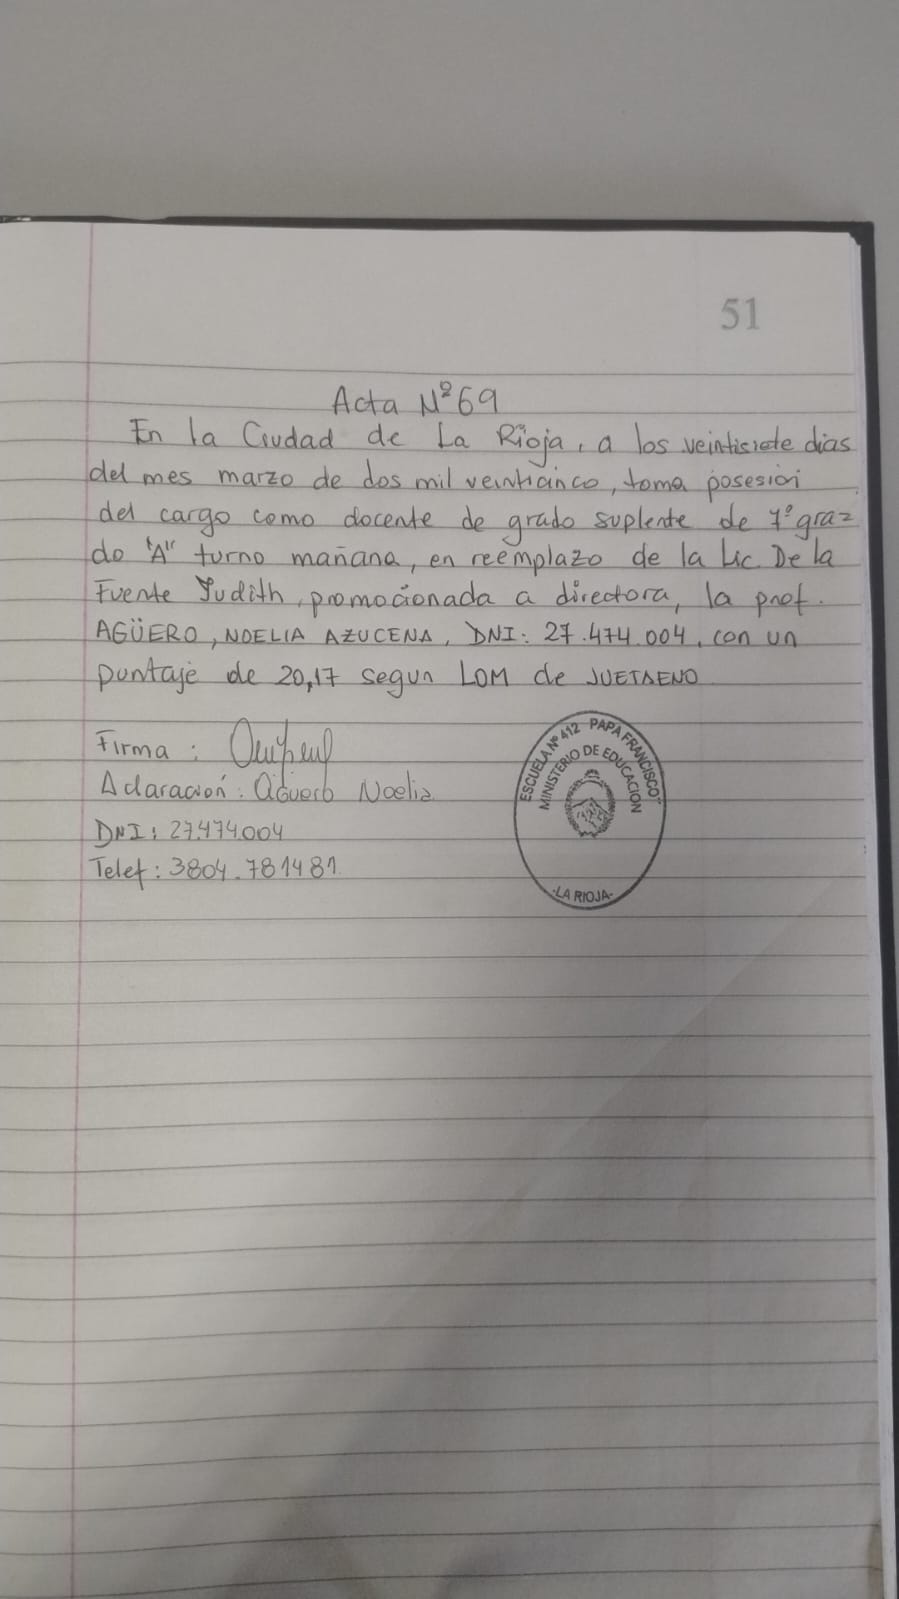 51
Acta Nº 69
En la Ciudad de La Rioja, a los veintisiete dias
del mes marzo de dos mil veinticinco, toma posesión
del cargo como docente de grado suplente de 7º gra=
do "A" turno mañana, en reemplazo de la Lic. De la
Fuente Judith, promocionada a directora, la prof.
AGÜERO, NOELIA AZUCENA, DNI: 27.474.004, con un
puntaje de 20,17 segun LOM de JUETAENO
Firma:
Aclaración: Agüero Noelia
DNI: 27.474.004
Telef: 3804.781481
ESCUELA Nº 412 "PAPA FRANCISCO"
MINISTERIO DE EDUCACION
-LA RIOJA-